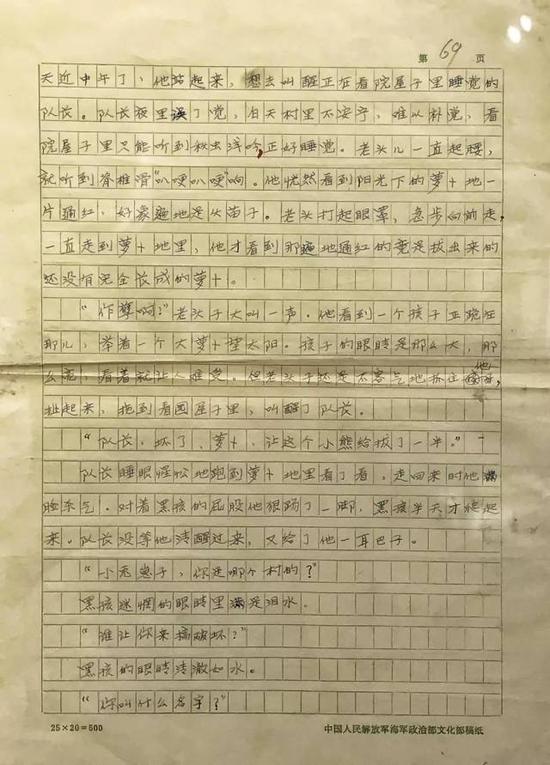 第 69 页
天近中午了，他站起来，想去叫醒正在看院屋子里睡觉的
队长。队长夜里误了觉，白天村里不安宁，难以补觉，看
院屋子里只能听到秋虫浅吟，正好睡觉。老头儿一直起腰，
就听到脊椎骨"叭哽叭哽"响。他恍然看到阳光下的萝卜地一
片通红，好象遍地是火苗子。老头打起眼罩，急步向前走，
一直走到萝卜地里，他才看到那遍地通红的竟是拔出来的
还没有完全长成的萝卜。
"作孽啊！"老头子大叫一声。他看到一个孩子正跪在
那儿，举着一个大萝卜望太阳。孩子的眼睛是那么大，那
么亮，看着就让人难受。但老头子还是不客气地抓住他，
扯起来，拖到看园屋子里，叫醒了队长。
"队长，坏了，萝卜，让这个小熊给拔了一半。"
队长睡眼惺忪地跑到萝卜地里看了看，走回来时他满
脸杀气。对着黑孩的屁股他狠踢了一脚，黑孩半天才爬起
来。队长没等他清醒过来，又给了他一耳巴子。
"小兔崽子，你是哪个村的？"
黑孩迷惘的眼睛里满是泪水。
"谁让你来搞破坏？"
黑孩的眼睛清澈如水。
"你叫什么名字？"
25×20=500
中国人民解放军海军政治部文化部稿纸